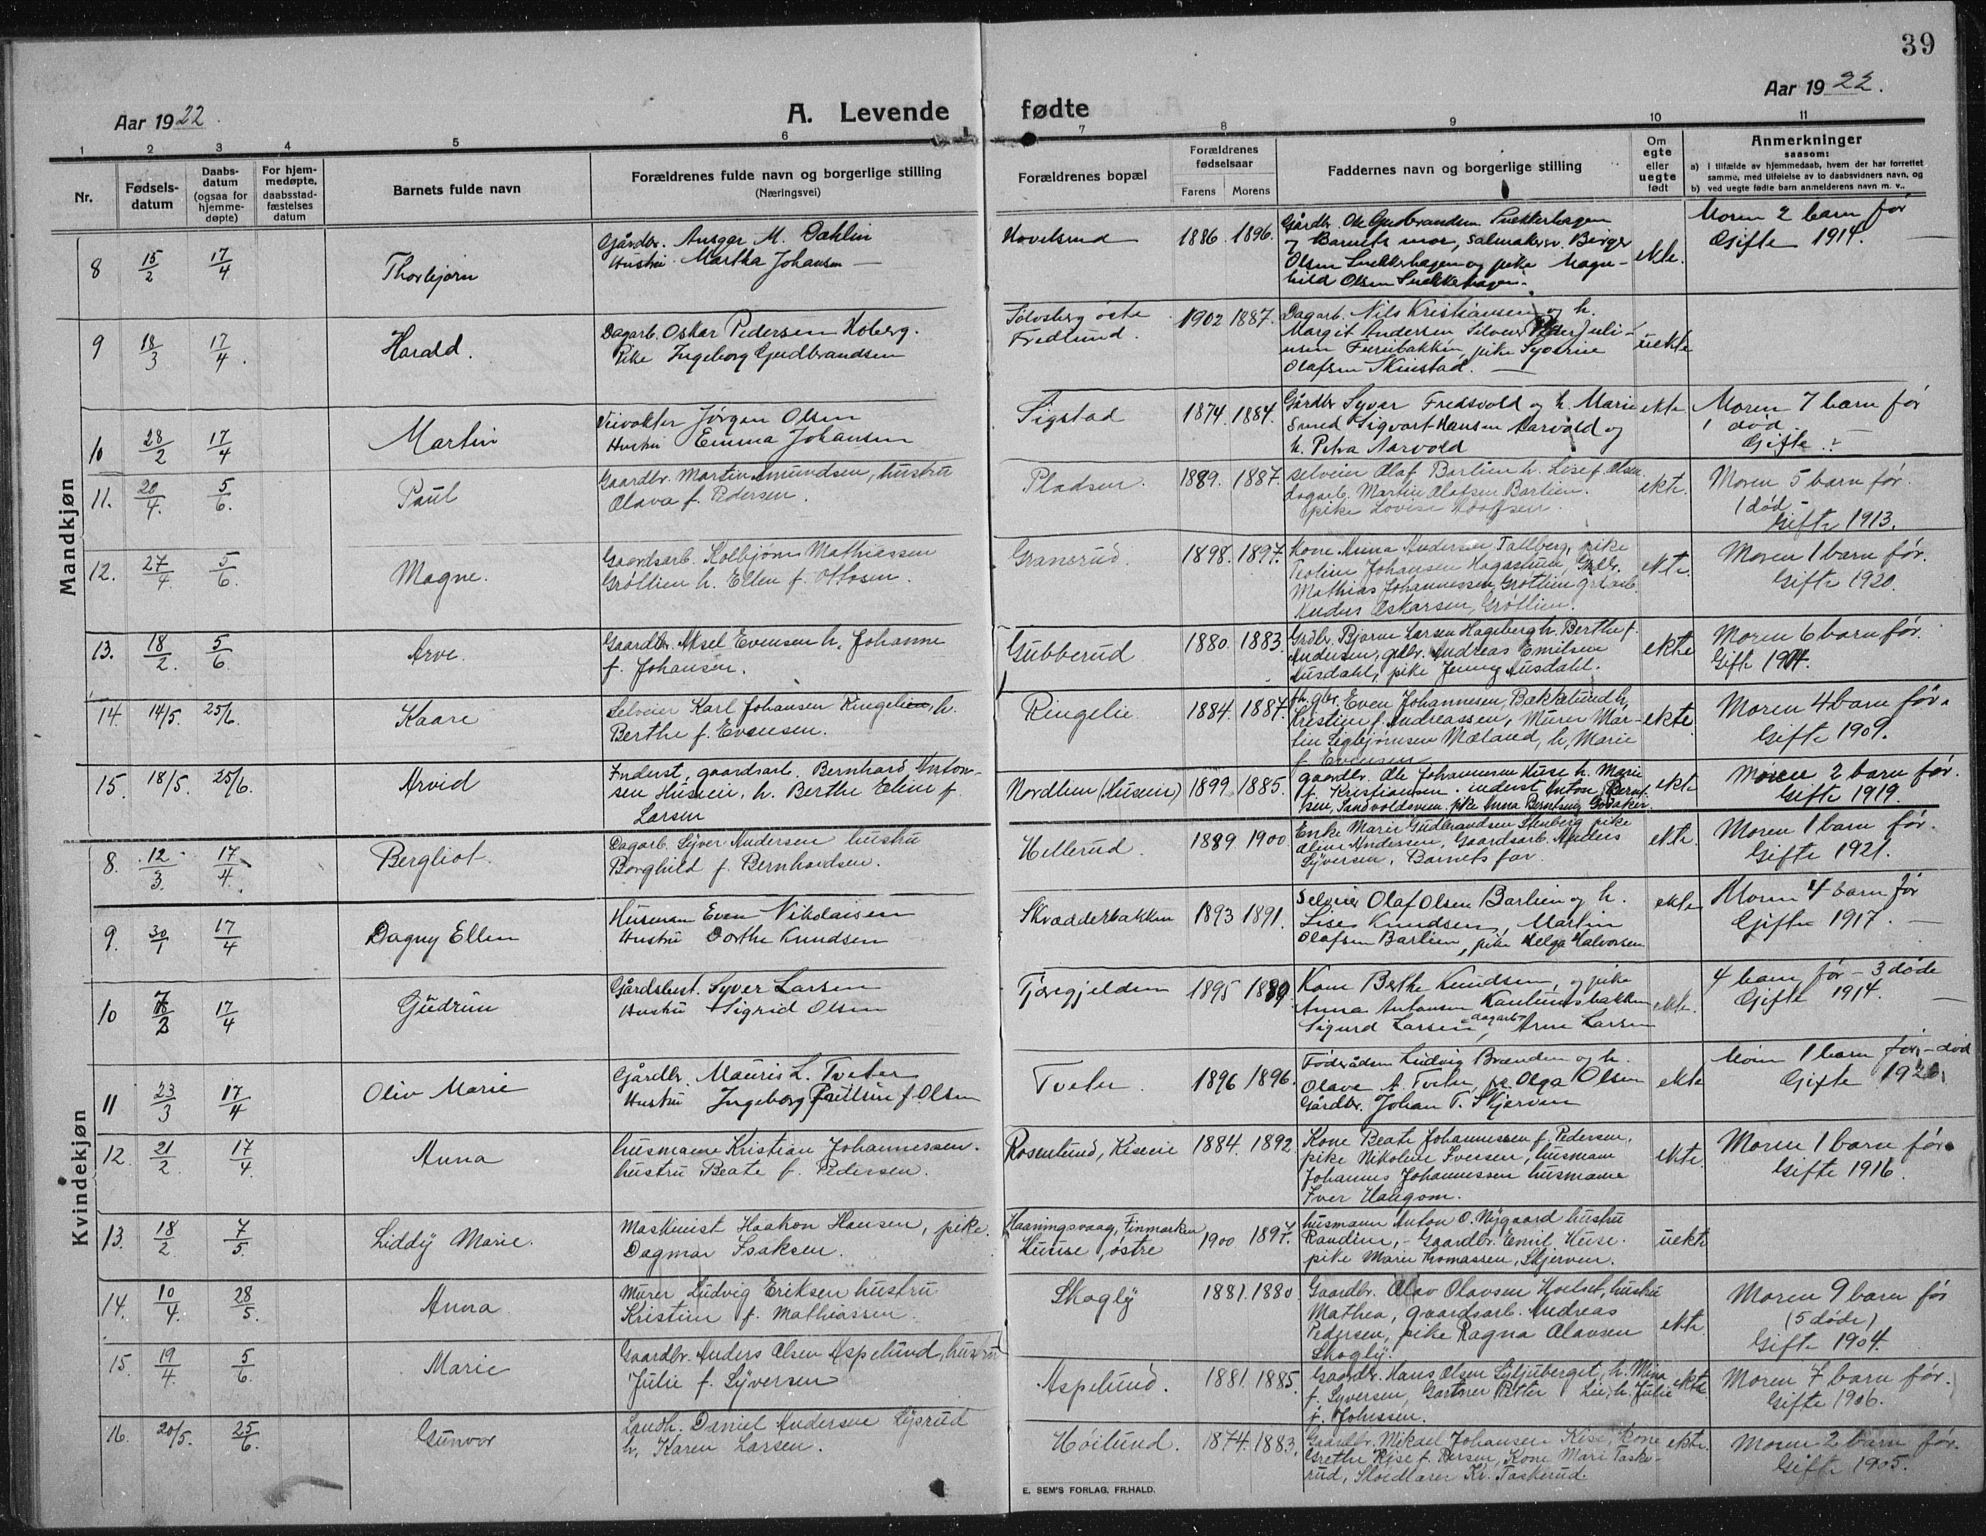 39
Aar 1922.
A. Levende fødte
Aar 1922.
1 2 3 4 5 6 7 8 9 10 11
Nr.
Fødsels-
datum
Daabs-
datum
(ogsaa for
hjemme-
døpte)
For hjem-
medøpte,
daabsstad-
fæstelses
datum
Barnets fulde navn
Forældrenes fulde navn og borgerlige stilling
(Næringsvei)
Forældrenes bopæl
Forældrenes
fødselsaar
Farens Morens
Faddernes navn og borgerlige stilling
Om
egte
eller
uegte
født
Anmerkninger
saasom:
a) i tilfælde av hjemmedaab, hvem der har forrettet
samme, med tilføielse av to daabsvidners navn, og
b) ved uegte fødte barn anmelderens navn m. v..
Mandkjøn
8 15/2 17/4 Thorbjørn
Gårdbr. Ansgar M. Dahlin
Hustru Martha Johansen
Hovelsrud 1886. 1896.
Gårdbr. Ole Gudbrandsen Snekkerhagen
og Barnets mor, salmakersv. Birger
Olsen Snekkerhagen og pike Magn-
hild Olsen Snekkerhagen.
ekte.
Moren 2 barn før
Gifte 1914.
9 18/3 17/4 Harald.
Dagarb. Oskar Pedersen Hoberg.
Pike Ingeborg Gudbrandsen
Sølvsberg østre
Fredlund. 1902 1887.
Dagarb. Nils Kristiansen og h.
Margit Andersen Selveier Juli-
usen Furubakken, pike
Olafsen Skiustad.
uekte
10 28/2 17/4 Martin
Veivokter Jørgen Olsen
Hustru Emma Johansen
Sigstad 1874. 1884.
Gårdbr Syver Fredsvold og h. Marie
Smed Sigvart Hansen Aarvold og
h. Petra Aarvold
ekte
Moren 7 barn før
1 død.
Gifte
11. 20/4. 5/6. Paul
Gaardbr. Martin Amundsen, hustru
Olava f. Pedersen.
Pladsen. 1889. 1887.
selveier Olaf Barlien h. Lise f. Olsen
dagarb. Martin Olafsen Barlien.
pike Lovise
ekte.
Moren 5 barn før.
1 død
Gifte 1913.
12. 27/4 5/6. Magne.
Gaardsarb. Kolbjørn Mathiassen
Grøtlien h. Ellen f. Ottosen.
Granerud. 1898. 1897.
Kone Anna Andersen Tallberg, pike
Teoline Johansen Hagastuen, Grdbr.
Mathias Johannessen Grøtlien grdarb.
Anders Oskarsen, Grøtlien.
ekte.
Moren 1 barn før.
Gifte 1920.
13. 18/2. 5/6 Arve.
Gaardbr. Aksel Evensen h. Johanne
f. Johansen.
Gubberud 1880. 1883.
Grdbr. Bjarne Larsen Hageberg h. Berthe f.
Andersen, gdbr. Andreas Emilsen
Ausdahl, pike Jenny Ausdahl.
ekte
Moren 6 barn før.
Gift 1904.
14. 14/5. 25/6. Kaare
Selveier Karl Johansen Ringelien, h.
Berthe f. Evensen.
Ringelie 1884. 1887.
gbr. Even Johannesen, Bakkelund h,
Kristine f. Andreassen, Murer Mar-
tin Sigbjørnsen Mæland, h, Marie
f. Evensen
ekte.
Moren 4 barn før.
Gifte 1909.
15. 18/5. 25/6. Arvid
Inderst, gaardsarb. Bernhard Anton-
sen Huseie, h. Berthe Eline f.
Larsen
Nordlien (Huseie) 1899. 1885.
gaardbr. Ole Johannesen Huse h. Marie
f. Kristiansen. inderst Anton Bernt-
sen, Sandvoldseien. pike Anna Berntsen
ekte
Moren 2 barn før.
Gifte 1919.
Kvindekjøn
8. 12/3. 17/4. Bergliot.
Dagarb. Syver Andersen hustru
Borghild f. Bernhardsen.
Hellerud. 1889. 1900
Enke Marie Gudbrandsen Stenberg pike
Aline Andersen, Gaardsarb. Anders
Syversen, Barnets far
ekte.
Moren 1 barn før.
Gifte 1921.
9. 30/1 17/4 Dagny Ellen
Husman Even Nikolaisen
Hustru Dorthe Knudsen
Skrædderbakken 1893 1891.
Selveier Olaf Olsen Barlien og h.
Lise Knudsen, Martin
Olafsen Barlien, pike Helga Halvorsen
ekte
Moren 4 barn før
Gifte 1917.
10 17/4 Gudrun
Gårdsbest. Syver Larsen
Hustru Sigrid Olsen
Tjerngjelden 1895 1889.
Kone Berthe Knudsen, og pike
Anna Antonsen Kantlundsbakken
Sigurd Larsen, dagarb. Arne Larsen
ekte.
4 barn før - 3 døde
Gifte 1914.
11 23/3 17/4 Oliv Marie
Gårdbr. Mauris L. Tveter
Hustru Ingeborg f. Olsen
Tveter. 1896 1896.
Føderåden Ludvig Brænden og h.
Olave A. Tveter, pike Olga Olsen
Gårdbr. Johan T. Skjerven
ekte
Moren 1 barn før, - død
Gifte 1920.
12. 21/2. 17/4. Anna
husmann Kristian Johannessen.
hustru Beate f. Pedersen.
Rosenlund, Kiseie 1884. 1892
Kone Beate Johannessen f. Pedersen,
pike Nikoline Iversen, husmann
Johannes Johannessen husmann
Iver Haugom.
ekte.
Moren 1 barn før.
Gifte 1916.
13. 18/2. 7/5. Liddy Marie.
Maskinist Haakon Hansen, pike.
Dagmar Isaksen.
Honningsvaag, Finmarken
Huuse, østre 1900 1897.
husmann Anton O. Nygaard hustru
Randine, - Gaardbr. Emil Huse.
pike Marie Thomassen, Skjerven.
uekte
14. 10/4. 28/5. Anna
Murer Ludvig Eriksen hustru
Kristine f. Mathiassen.
Skogly 1881. 1880
Gaardbr. Olav Olavsen Hoelset, hustru
Mathea, gaardsarb. Andreas
Pedersen, pike Ragna Olavsen
Skogly.
ekte
Moren 9 barn før
(5 døde)
Gifte 1904.
15 19/4. 5/6. Marie
Gaardbr. Anders Olsen Aspelund, hustru
Julie f. Syversen
Aspelund. 1881. 1885.
Gaardbr. Hans Olsen Syljuberget, h. Mina
f. Syversen, Gartner Petter Lie, h. Julie
f. Johnssen.
ekte
Moren 7 barn før.
Gifte 1906.
16. 20/5. 25/6. Gunvor
Landh. Daniel Andersen Lysrud
h, Karen Larsen.
Høilund. 1874. 1883.
Gaardbr. Mikael Johansen Kise, kone
Grethe Kise f. Iversen, Kone Mari Taske-
rud, Skredlærer Kr. Taskerud.
ekte.
Moren 2 barn før.
Gifte 1905.
E. SEM'S FORLAG, FR.HALD.